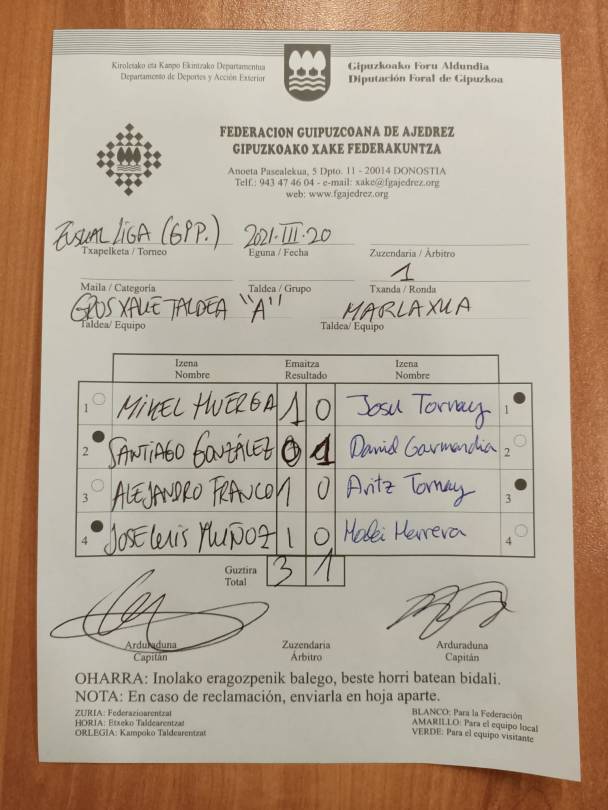 Kiroletako eta Kanpo Ekintzako Departamentua
Departamento de Deportes y Acción Exterior
Gipuzkoako Foru Aldundia
Diputación Foral de Gipuzkoa
FEDERACION GUIPUZCOANA DE AJEDREZ
GIPUZKOAKO XAKE FEDERAKUNTZA
Anoeta Pasealekua, 5 Dpto. 11 - 20014 DONOSTIA
Telf.: 943 47 46 04 - e-mail: xake@fgajedrez.org
web: www.fgajedrez.org
EUSKAL LIGA (GPP.) 2021·III·20
Txapelketa / Torneo Eguna / Fecha Zuzendaria / Árbitro
1
Maila / Categoría Taldea / Grupo Txanda / Ronda
GROS XAKE TALDEA "A" MARLAXKA
Taldea/ Equipo Taldea/ Equipo
Izena Emaitza Izena
Nombre Resultado Nombre
1 MIKEL HUERGA 1 0 Josu Tornay 1
2 SANTIAGO GONZÁLEZ 0 1 David Garmendia 2
3 ALEJANDRO FRANCO 1 0 Aritz Tornay 3
4 JOSE LUIS MUÑOZ 1 0 Herrera 4
Guztira
Total 3 1
Arduraduna Zuzendaria Arduraduna
Capitán Árbitro Capitán
OHARRA: Inolako eragozpenik balego, beste horri batean bidali.
NOTA: En caso de reclamación, enviarla en hoja aparte.
ZURIA: Federazioarentzat
HORIA: Etxeko Taldearentzat
ORLEGIA: Kampoko Taldearentzat
BLANCO: Para la Federación
AMARILLO: Para el equipo local
VERDE: Para el equipo visitante